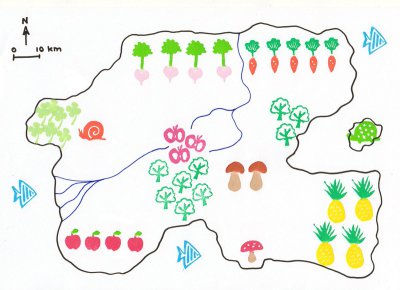 N
0 10 km